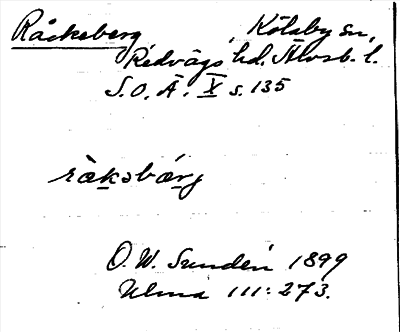 Råckeberg, Kölaby sn,
Redvägs hd. Älvsb. l.
S.O.Ä. X s. 135
ràkəbárg
O. W. Sundén 1899
Ulma 111:273.